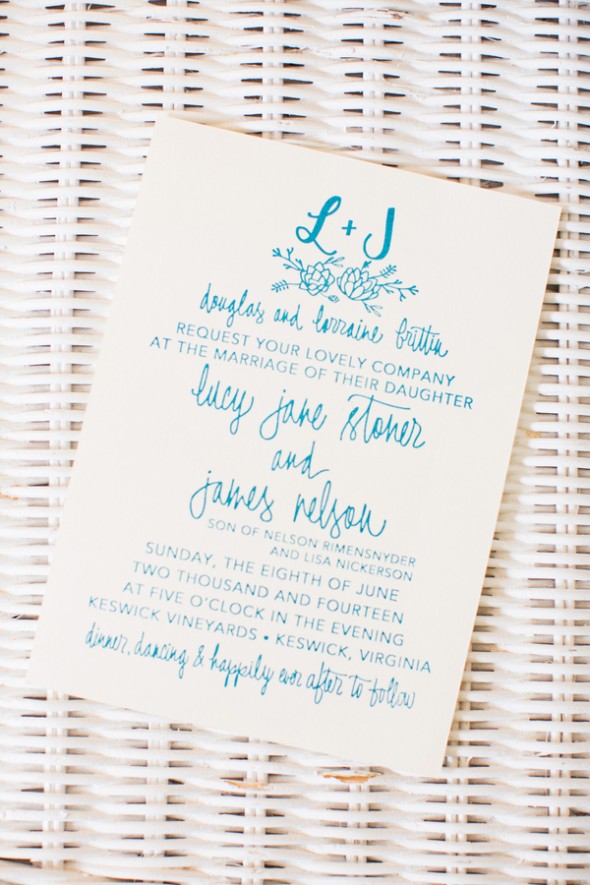 L + J
douglas and lorraine brittin
REQUEST YOUR LOVELY COMPANY
AT THE MARRIAGE OF THEIR DAUGHTER
lucy jane stoner
and
james nelson
SON OF NELSON RIMENSNYDER
AND LISA NICKERSON
SUNDAY, THE EIGHTH OF JUNE
TWO THOUSAND AND FOURTEEN
AT FIVE O'CLOCK IN THE EVENING
KESWICK VINEYARDS • KESWICK, VIRGINIA
dinner, dancing & happily ever after to follow